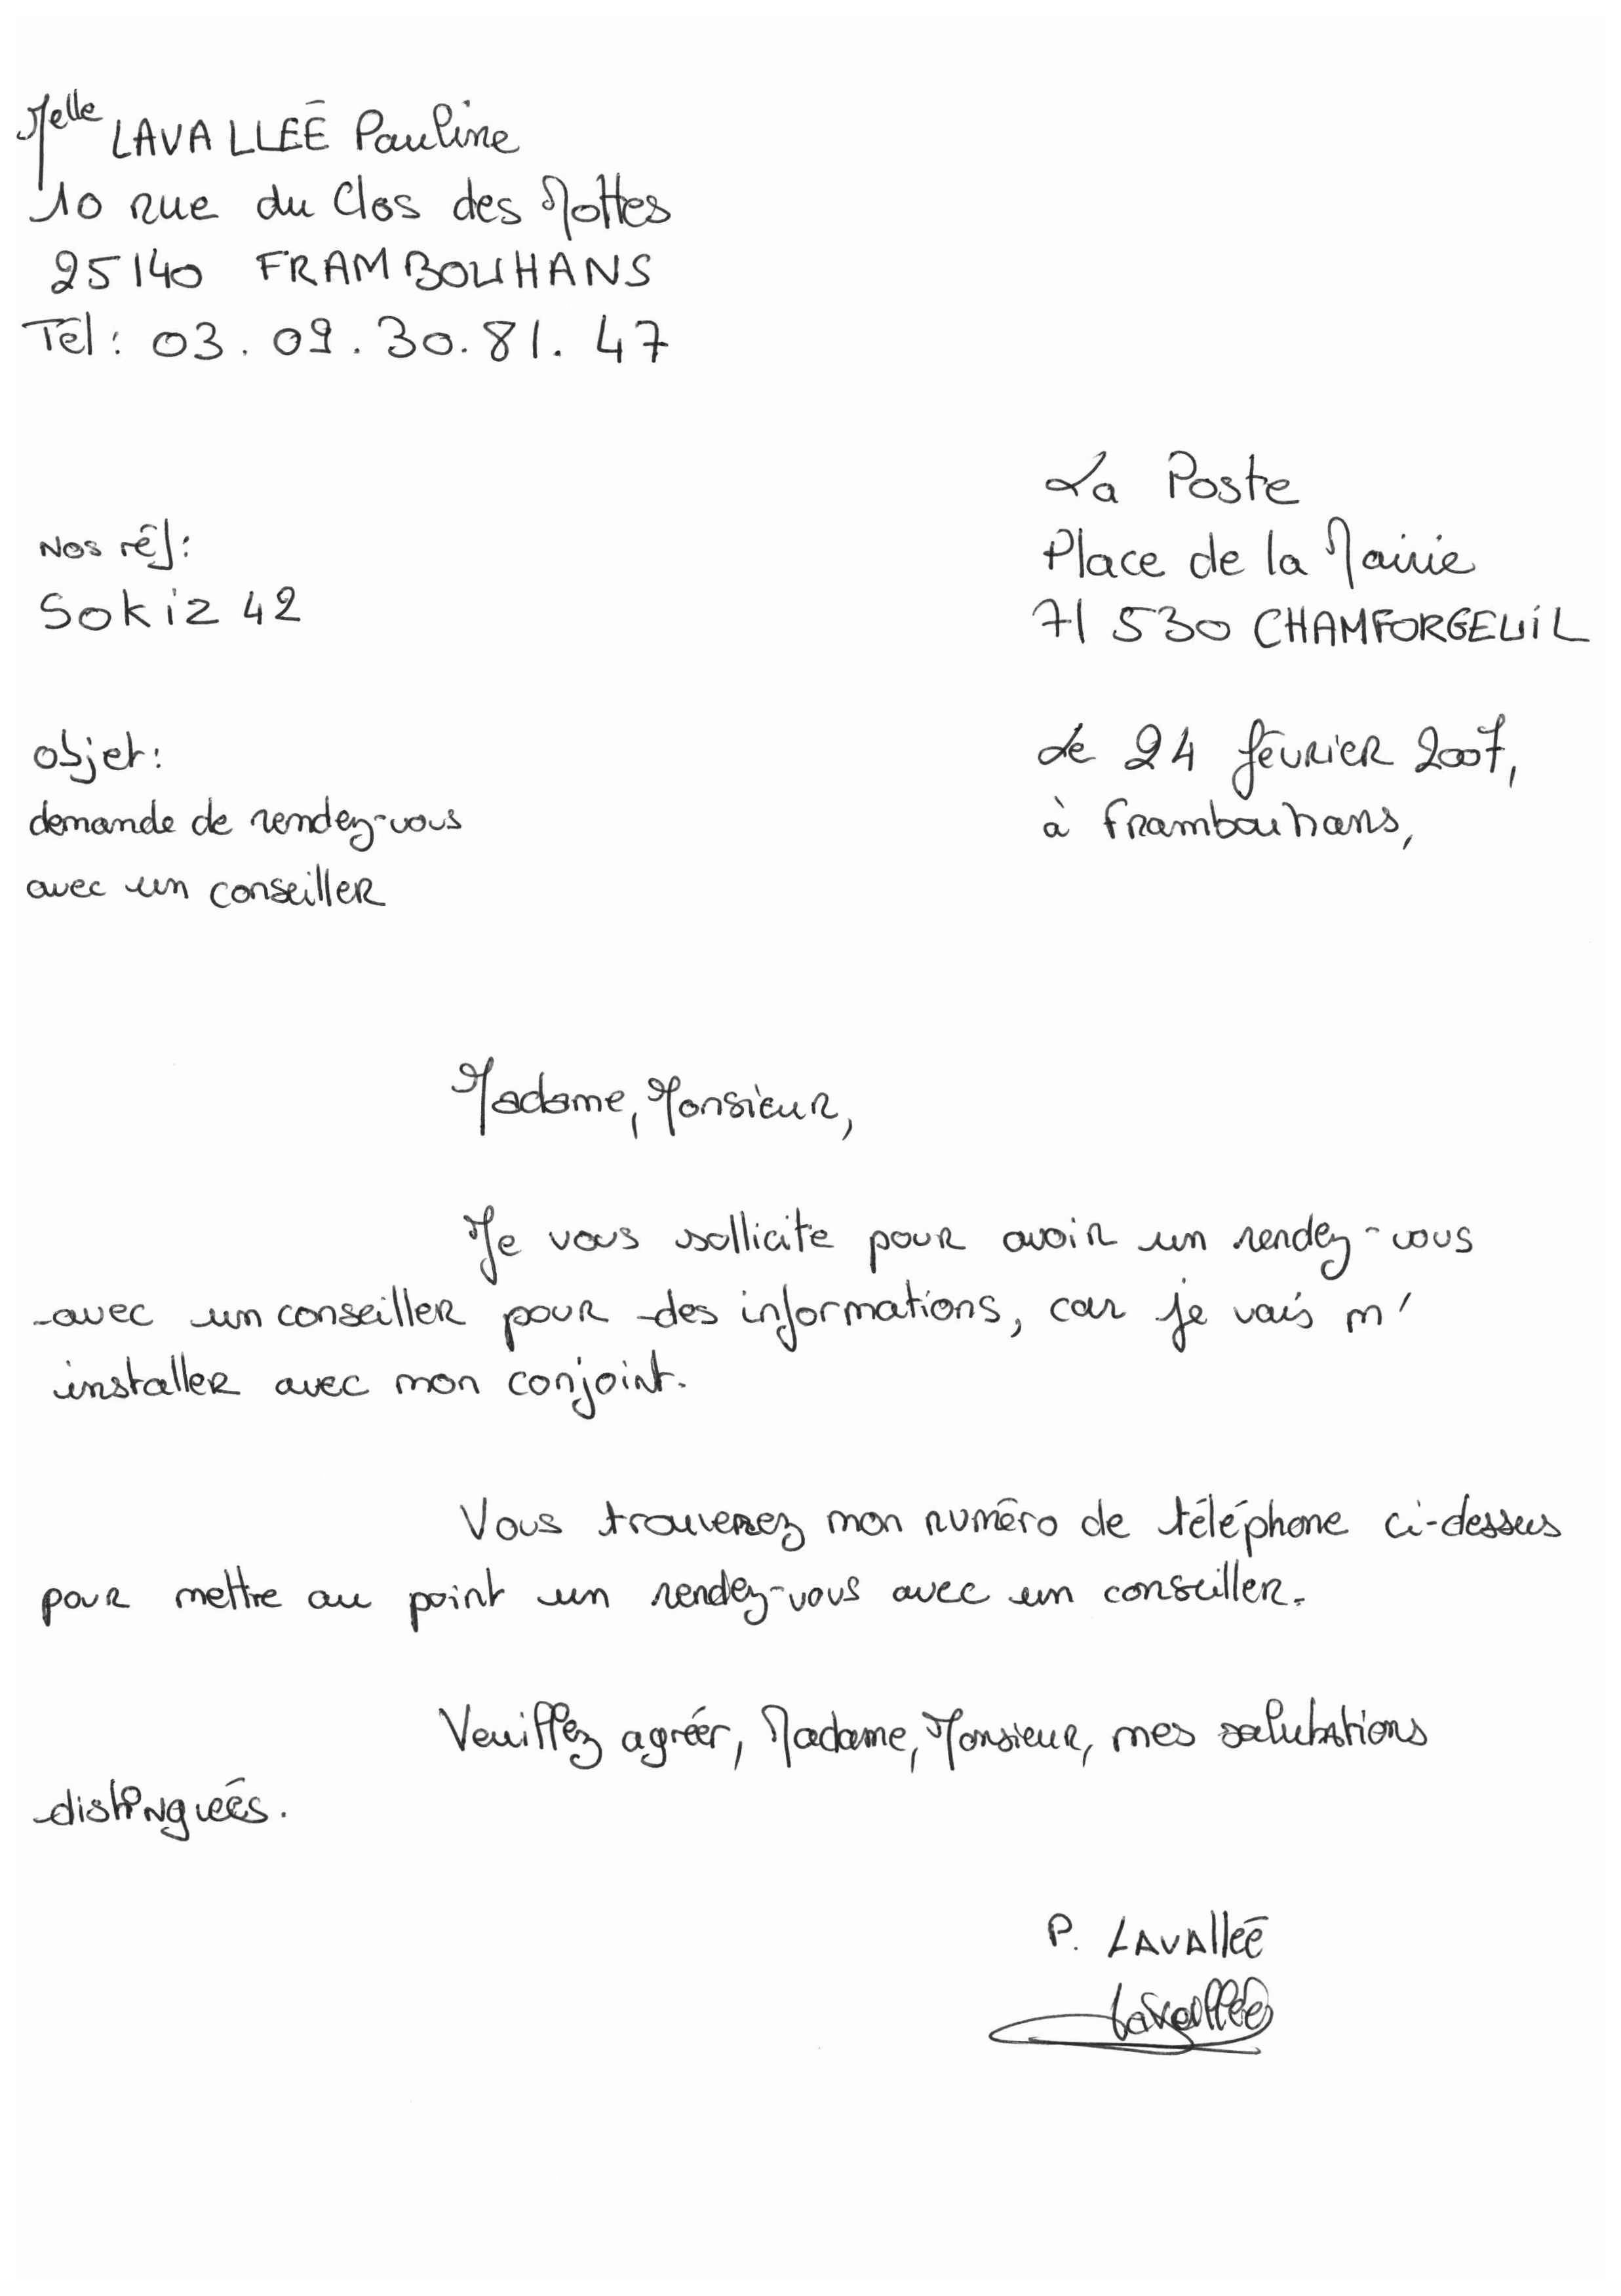 Melle LAVALLÉE Pauline
10 rue du Clos des Mottes
25140 FRAMBOUHANS
Tél : 03.09.30.81.47
La Poste
Place de la Mairie
71 530 CHAMFORGEUIL
Nos réf :
SOKIZ 42
Le 24 février 2007,
à Frambouhans,
objet :
demande de rendez-vous
avec un conseiller
Madame, Monsieur,
Je vous sollicite pour avoir un rendez-vous
avec un conseiller pour des informations, car je vais m'
installer avec mon conjoint.
Vous trouverez mon numéro de téléphone ci-dessus
pour mettre au point un rendez-vous avec un conseiller.
Veuillez agréer, Madame, Monsieur, mes salutations
distinguées.
P. LAVAllée
Lavallée